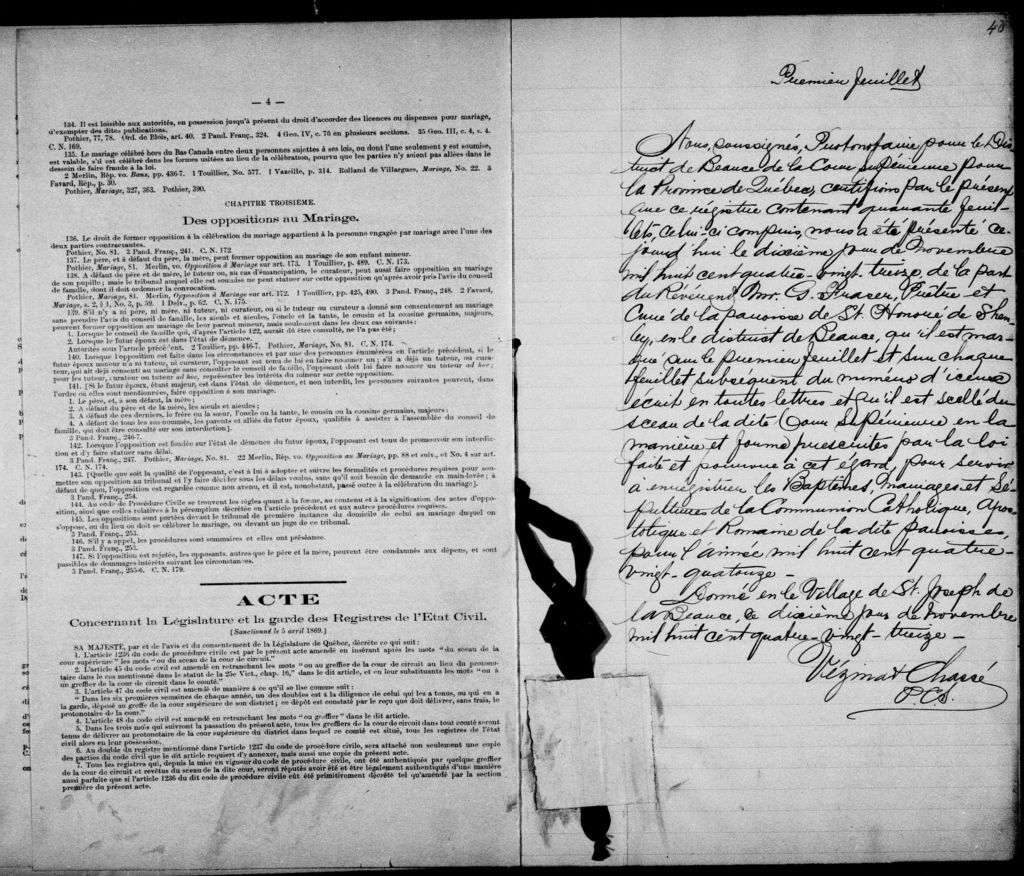 — 4 —
134. Il est loisible aux autorités, en possession jusqu'à présent du droit d'accorder des licences ou dispenses pour mariage,
d'exempter des dites publications.
Pothier, 77, 78. Ord. de Blois, art. 40. 2 Pand. Franç., 324. 4 Geo. IV, c. 76 en plusieurs sections. 35 Geo. III, c. 4, s. 4.
C. N. 169.
135. Le mariage célébré hors du Bas Canada entre deux personnes sujettes à ses lois, ou dont l'une seulement y est soumise,
est valable, s'il est célébré dans les formes usitées au lieu de la célébration, pourvu que les parties n'y soient pas allées dans le
dessein de faire fraude à la loi.
2 Merlin, Rép. vo. Bans, pp. 436-7. 1 Touillier, No. 577. 1 Vazeille, p. 314. Rolland de Villargues, Mariage, No. 22. 3
Favard, Rép., p. 30.
Pothier, Mariage, 327, 363. Pothier, 390.
CHAPITRE TROISIÈME.
Des oppositions au Mariage.
136. Le droit de former opposition à la célébration du mariage appartient à la personne engagée par mariage avec l'une des
deux parties contractantes.
Pothier, No. 81. 3 Pand. Franç., 241. C. N. 172.
137. Le père, et à défaut du père, la mère, peut former opposition au mariage de son enfant mineur.
Pothier, Mariage, 81. Merlin, vo. Opposition à Mariage sur art. 173. 1 Touillier, p. 489. C. N. 173.
138. A défaut de père et de mère, le tuteur ou, au cas d'émancipation, le curateur, peut aussi faire opposition au mariage
de son pupille; mais le tribunal auquel elle est soumise ne peut statuer sur cette opposition qu'après avoir pris l'avis du conseil
de famille, dont il doit ordonner la convocation.
Pothier, Mariage, 81. Merlin, Opposition à Mariage sur art. 172. 1 Touillier, pp. 425, 490. 3 Pand. Franç., 248. 2 Favard,
Mariage, s. 2, § 1, No. 3, p. 59. 1 Delv., p. 62. C. N. 175.
139. S'il n'y a ni père, ni mère, ni tuteur, ni curateur, ou si le tuteur ou curateur a donné son consentement au mariage
sans prendre l'avis du conseil de famille, les aïeuls et aïeules, l'oncle et la tante, le cousin et la cousine germains, majeurs,
peuvent former opposition au mariage de leur parent mineur, mais seulement dans les deux cas suivants:
1. Lorsque le conseil de famille qui, d'après l'article 122, aurait dû être consulté, ne l'a pas été;
2. Lorsque le futur époux est dans l'état de démence.
Autorités sous l'article précé'ent. 2 Touillier, pp. 446-7. Pothier, Mariage, No. 81. C. N. 174.
140. Lorsque l'opposition est faite dans les circonstances et par une des personnes énumérées en l'article précédent, si le
futur époux mineur n'a ni tuteur, ni curateur, l'opposant est tenu de lui en faire nommer un; s'il a déjà un tuteur, ou cura-
teur, qui ait déjà consenti au mariage sans consulter le conseil de famille, l'opposant doit lui faire nommer un tuteur ad hoc;
pour les tuteur, curateur ou tuteur ad hoc, représenter les intérêts du mineur sur cette opposition.
141. [Si le futur époux, étant majeur, est dans l'état de démence, et non interdit, les personnes suivantes peuvent, dans
l'ordre où elles sont mentionnées, faire opposition à son mariage.
1. Le père, et, à son défaut, la mère;
2. A défaut du père et de la mère, les aïeuls et aïeules;
3. A défaut de ces derniers, le frère ou la sœur, l'oncle ou la tante, le cousin ou la cousine germains, majeurs;
4. A défaut de tous les sus-nommés, les parents et alliés du futur époux, qualifiés à assister à l'assemblée du conseil de
famille, qui doit être consulté sur son interdiction];
3 Pand. Franç., 246-7.
142. Lorsque l'opposition est fondée sur l'état de démence du futur époux, l'opposant est tenu de promouvoir son interdic-
tion et d'y faire statuer sans délai.
3 Pand. Franç., 247. Pothier, Mariage, No. 81. 22 Merlin, Rép. vo. Opposition au Mariage, pp. 88 et suiv., et No. 4 sur art.
174. C. N. 174.
143. [Quelle que soit la qualité de l'opposant, c'est à lui à adopter et suivre les formalités et procédures requises pour sou-
mettre son opposition au tribunal et l'y faire décider sous les délais voulus, sans qu'il soit besoin de demande en main-levée; à
défaut de quoi, l'opposition est regardée comme non avenue, et il est, nonobstant, passé outre à la célébration du mariage].
3 Pand. Franç., 254.
144. Au code de Procédure Civile se trouvent les règles quant à la forme, au contenu et à la signification des actes d'oppo-
sition, ainsi que celles relatives à la péremption décrétée en l'article précédent et aux autres procédures requises.
145. Les oppositions sont portées devant le tribunal de première instance du domicile de celui au mariage duquel on
s'oppose, ou du lieu où doit se célébrer le mariage, ou devant un juge de ce tribunal.
3 Pand. Franç., 253.
146. S'il y a appel, les procédures sont sommaires et elles ont préséance.
3 Pand. Franç., 253.
147. Si l'opposition est rejetée, les opposants, autres que le père et la mère, peuvent être condamnés aux dépens, et sont
passibles de dommages-intérêts suivant les circonstances.
3 Pand. Franç., 255-6. C. N. 179.
ACTE
Concernant la Législature et la garde des Registres de l'Etat Civil.
(Sanctionné le 5 avril 1869.)
SA MAJESTÉ, par et de l'avis et du consentement de la Législature de Québec, décrète ce qui suit:
1. L'article 1236 du code de procédure civile est par le présent acte amendé en insérant après les mots "du sceau de la
cour supérieure" les mots "ou du sceau de la cour de circuit."
2. L'article 45 du code civil est amendé en retranchant les mots "ou au greffier de la cour de circuit au lieu du protono-
taire dans le cas mentionné dans le statut de la 25e Vict., chap. 16," dans le dit article, et en leur substituant les mots "à un
greffier de la cour de circuit dans le comté."
3. L'article 47 du code civil est amendé de manière à ce qu'il se lise comme suit:
"Dans les six premières semaines de chaque année, un des doubles est à la diligence de celui qui les a tenus, ou qui en a
la garde, déposé au greffe de la cour supérieure de son district; ce dépôt est constaté par le reçu que doit délivrer, sans frais, le
protonotaire de la cour."
4. L'article 48 du code civil est amendé en retranchant les mots "ou greffier" dans le dit article.
5. Dans les trois mois qui suivront la passation du présent acte, tous les greffiers de la cour de circuit dans tout comté seront
tenus de délivrer au protonotaire de la cour supérieure du district dans lequel ce comté est situé, tous les registres de l'état
civil alors en leur possession.
6. Au double du registre mentionné dans l'article 1237 du code de procédure civile, sera attaché non seulement une copie
des parties du code civil que le dit article requiert d'y annexer, mais aussi une copie du présent acte.
7. Tous les registres qui, depuis la mise en vigueur du code de procédure civile, ont été authentiqués par quelque greffier
de la cour de circuit et revêtus du sceau de la dite cour, seront réputés avoir été et être légalement authentiqués d'une manière
aussi parfaite que si l'article 1236 du dit code de procédure civile eût été primitivement décrété tel qu'amendé par la section
première du présent acte.
40
Premier feuillet
Nous, soussignés, Protonotaire pour le Dis-
trict de Beauce de la Cour supérieure pour
la Province de Québec, certifions par le présent
que ce régistre contenant quarante feuil-
lets, celui-ci compris, nous a été présenté ce-
jourd'hui le dixième jour de Novembre
mil huit cent quatre-vingt-treize, de la part
du Révérend Mr. G. Fraser, Prêtre et
Curé de la paroisse de St. Honoré de Shen-
ley, en le district de Beauce, qu'il est mar-
qué sur le premier feuillet et sur chaque
feuillet subséquent du numéro d'iceux
écrit en toutes lettres et qu'il est scellé du
sceau de la dite Cour Supérieure en la
manière et forme prescrites par la loi
faite et pourvue à cet égard, pour servir
à enregistrer les Baptêmes, Mariages et Sé-
pultures de la Communion Catholique, Apos-
tolique et Romaine de la dite paroisse,
pour l'année mil huit cent quatre-
vingt-quatorze -
Donné en le Village de St. Joseph de
la Beauce, ce dixième jour de Novembre
mil huit cent quatre-vingt-treize -
Vézina & Chassé
P.C.S.